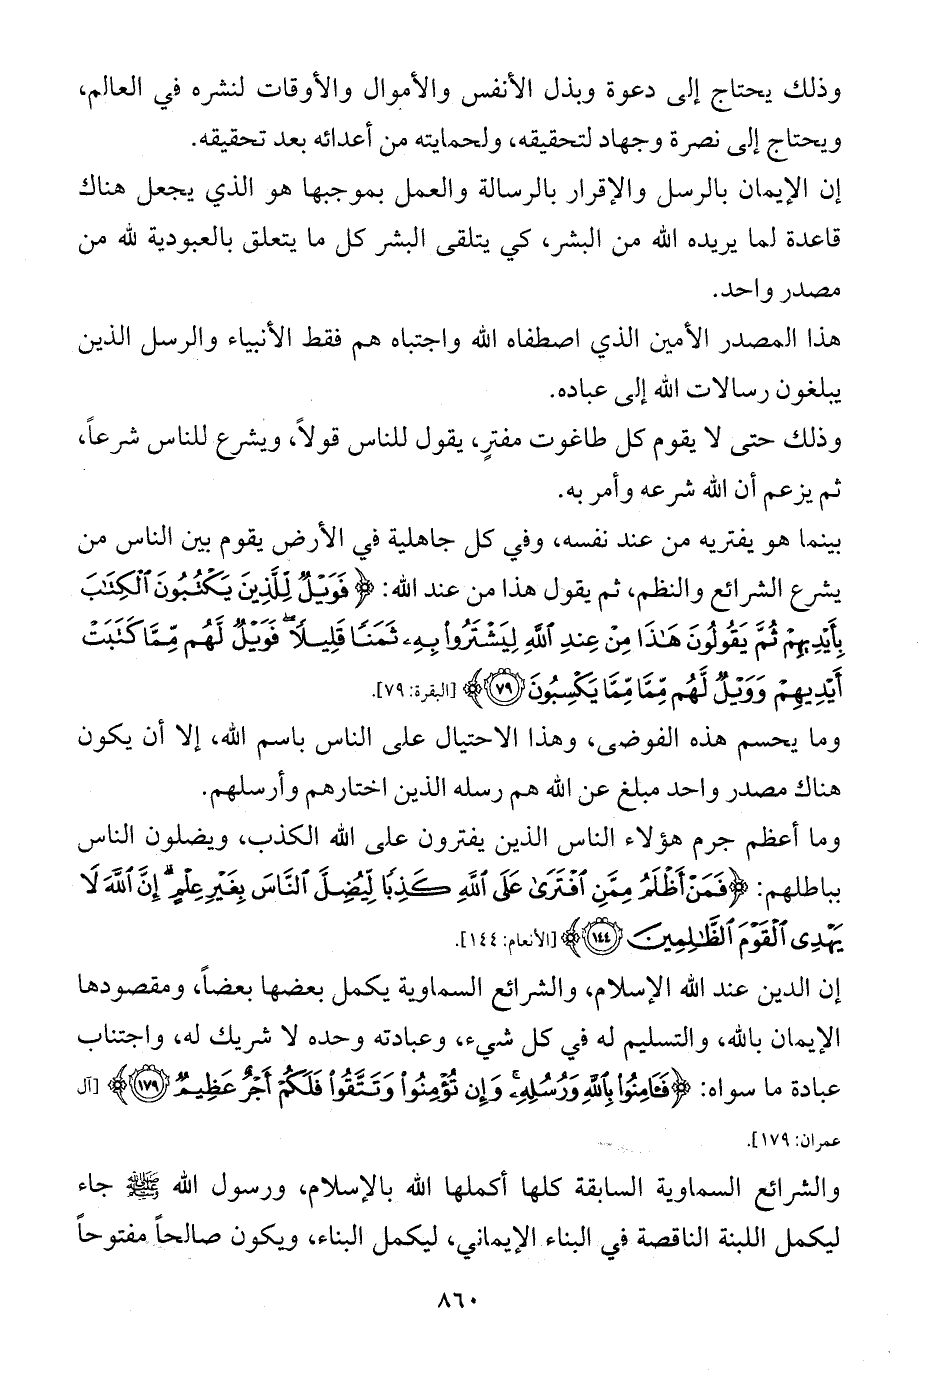 وذلك يحتاج إلى دعوة وبذل الأنفس والأموال والأوقات لنشره في العالم،
ويحتاج إلى نصرة وجهاد لتحقيقه، ولحمايته من أعدائه بعد تحقيقه.
إن الإيمان بالرسل والإقرار بالرسالة والعمل بموجبها هو الذي يجعل هناك
قاعدة لما يريده الله من البشر، كي يتلقى البشر كل ما يتعلق بالعبودية لله من
مصدر واحد.
هذا المصدر الأمين الذي اصطفاه الله واجتباه هم فقط الأنبياء والرسل الذين
يبلغون رسالات الله إلى عباده.
وذلك حتى لا يقوم كل طاغوت مفترٍ، يقول للناس قولاً، ويشرع للناس شرعاً،
ثم يزعم أن الله شرعه وأمر به.
بينما هو يفتريه من عند نفسه، وفي كل جاهلية في الأرض يقوم بين الناس من
يشرع الشرائع والنظم، ثم يقول هذا من عند الله: ﴿فَوَيْلٌ لِّلَّذِينَ يَكْتُبُونَ ٱلْكِتَٰبَ
بِأَيْدِيهِمْ ثُمَّ يَقُولُونَ هَٰذَا مِنْ عِندِ ٱللَّهِ لِيَشْتَرُوا۟ بِهِۦ ثَمَنًا قَلِيلًا ۖ فَوَيْلٌ لَّهُم مِّمَّا كَتَبَتْ
أَيْدِيهِمْ وَوَيْلٌ لَّهُم مِّمَّا مِّمَّا يَكْسِبُونَ ٧٩﴾ [البقرة: ٧٩].
وما يحسم هذه الفوضى، وهذا الاحتيال على الناس باسم الله، إلا أن يكون
هناك مصدر واحد مبلغ عن الله هم رسله الذين اختارهم وأرسلهم.
وما أعظم جرم هؤلاء الناس الذين يفترون على الله الكذب، ويضلون الناس
بباطلهم: ﴿فَمَنْ أَظْلَمُ مِمَّنِ ٱفْتَرَىٰ عَلَى ٱللَّهِ كَذِبًا لِّيُضِلَّ ٱلنَّاسَ بِغَيْرِ عِلْمٍ ۗ إِنَّ ٱللَّهَ لَا
يَهْدِى ٱلْقَوْمَ ٱلظَّٰلِمِينَ ١٤٤﴾ [الأنعام: ١٤٤].
إن الدين عند الله الإسلام، والشرائع السماوية يكمل بعضها بعضاً، ومقصودها
الإيمان بالله، والتسليم له في كل شيء، وعبادته وحده لا شريك له، واجتناب
عبادة ما سواه: ﴿فَـَٔامِنُوا۟ بِٱللَّهِ وَرُسُلِهِۦ ۚ وَإِن تُؤْمِنُوا۟ وَتَتَّقُوا۟ فَلَكُمْ أَجْرٌ عَظِيمٌ ١٧٩﴾ [آل
عمران: ١٧٩].
والشرائع السماوية السابقة كلها أكملها الله بالإسلام، ورسول الله ﷺ جاء
ليكمل اللبنة الناقصة في البناء الإيماني، ليكمل البناء، ويكون صالحاً مفتوحاً
٨٦٠